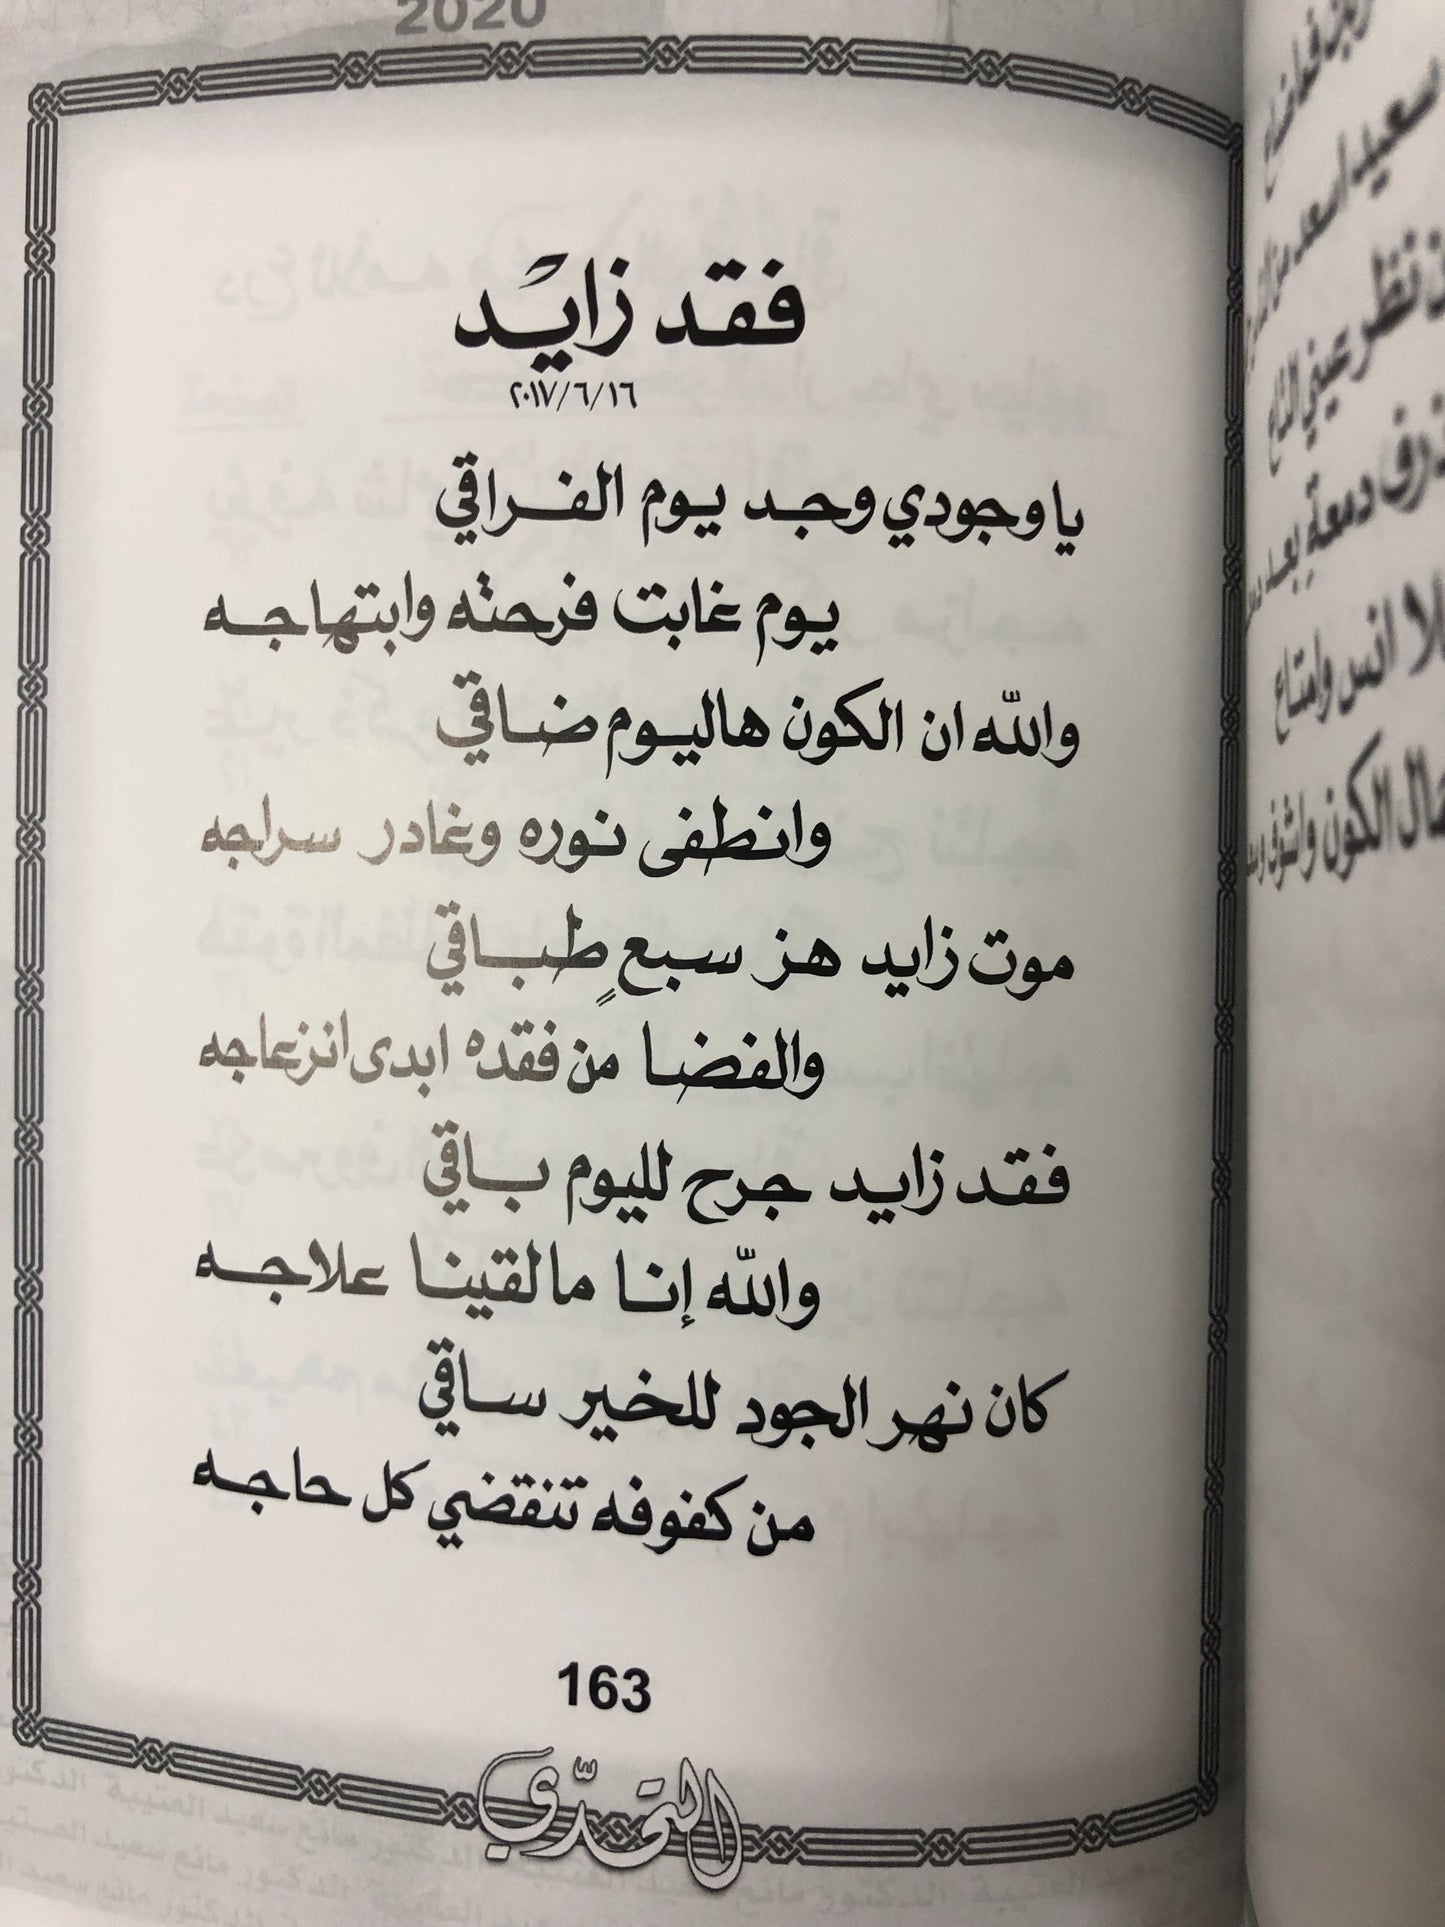 2020
فقد زايد
٢٠١٧/٦/١٦
يا وجودي وجد يوم الفراقي
يوم غابت فرحته وابتهاجه
والله ان الكون هاليوم ضاقي
وانطفى نوره وغادر سراجه
موت زايد هز سبعٍ طباقي
والفضا من فقده ابدى انزعاجه
فقد زايد جرح لليوم باقي
والله إنا مالقينا علاجه
كان نهر الجود للخير ساقي
من كفوفه تنقضي كل حاجه
163
التحدّي
تنظر عيني
دمعةٍ بعد
انس وامتاع
الكون واشوف